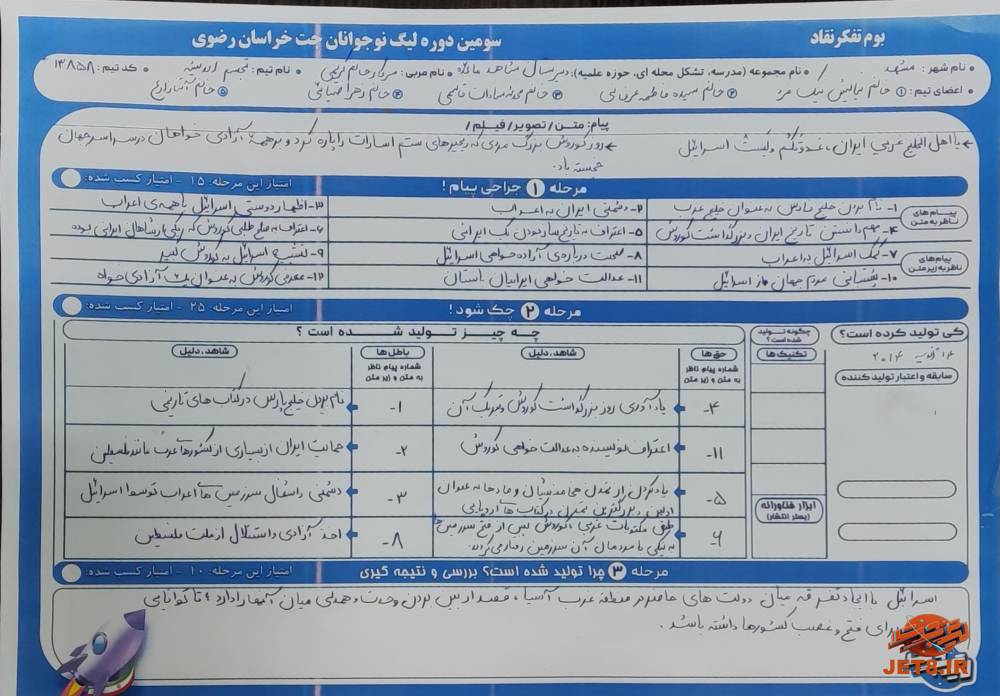 بوم تفکر نقاد
سومین دوره لیگ نوجوانان جت خراسان رضوی
• نام شهر: مشهد • نام مجموعه (مدرسه، تشکل محله ای، حوزه علمیه): دبیرستان شاهد • نام مربی: سرکار خانم کریمی • نام تیم: تجسم اندیشه • کد تیم: ۱۳۸۵۸
• اعضای تیم: ① خانم نیایش نیک مرد ② خانم سیده فاطمه عرفانی ③ خانم قاسمی ④ خانم زهرا ⑤ خانم
پیام: متن/ تصویر/ فیلم/
← یا اهل الخلیج عربي ایران، عدوتکم ولیست اسرائیل
← روز کوروش بزرگ مردی که زنجیرهای ستم اسارات را پاره کرد و بر همه آزادی خواهان در سراسر جهان
خجسته باد.
مرحله ۱ جراحی پیام!
امتیاز این مرحله: ۱۵ - امتیاز کسب شده:
پیام های ناظر به متن
۱- نام بردن خلیج فارس به عنوان خلیج عرب
۲- دشمنی ایران به اعراب
۳- اظهار دوستی اسرائیل با همه ی اعراب
۴- مهم دانستن تاریخ ایران و بزرگداشت کوروش
۵- اعتراف به تاریخ ساز بودن یک ایرانی
۶- اعتراف به صلح طلبی کوروش که یکی از شاهان ایرانی بوده
پیام های ناظر به زیر متن
۷- کمک اسرائیل به اعراب
۸- صحبت درباره ی آزاده خواهی اسرائیل
۹- تشبیه اسرائیل به کوروش کبیر
۱۰- پشتبانی مردم جهان از اسرائیل
۱۱- عدالت خواهی ایرانیان باستان
۱۲- معرفی کوروش به عنوان یک آزادی خواه
مرحله ۲ چک شود!
امتیاز این مرحله: ۲۵ - امتیاز کسب شده:
کی تولید کرده است؟
۲۰۱۴
سابقه و اعتبار تولید کننده
چگونه تولید شده است؟
تکنیک ها
ابزار فناورانه
(بستر انتشار)
چه چیز تولید شده است؟
حق ها
شماره پیام ناظر به متن و زیر متن
شاهد، دلیل
باطل ها
شماره پیام ناظر به متن و زیر متن
شاهد، دلیل
۴- یادآوری روز بزرگداشت کوروش و تبریک آن
۱- نام بردن خلیج پارس در کتاب های تاریخی
۱۱- اعتراف نویسنده به عدالت خواهی کوروش
۲- حمایت ایران از بسیاری از کشورها عرب مانند فلسطین
۵- یاد کردن از تمدن هخامنشیان و مادها به عنوان
اولین و بزرگترین تمدن در کتاب ها اروپایی
۳- دشمنی و اشغال سرزمین ها اعراب توسط اسرائیل
۶- طبق مکتوبات غربی، کوروش پس از فتح سرزمین ها
به نیکی با مردمان آن سرزمین رفتار می کرده
۸- اخذ آزادی و استقلال از ملت فلسطین
مرحله ۳ چرا تولید شده است؟ بررسی و نتیجه گیری
امتیاز این مرحله: ۱۰ - امتیاز کسب شده:
اسرائیل با ایجاد تفرقه میان دولت های حاضر در منطقه غرب آسیا، قصد از بین بردن وحدت و همدلی میان آنها را دارد تا توانایی
برای فتح و غصب کشورها داشته باشد.
JET8.IR